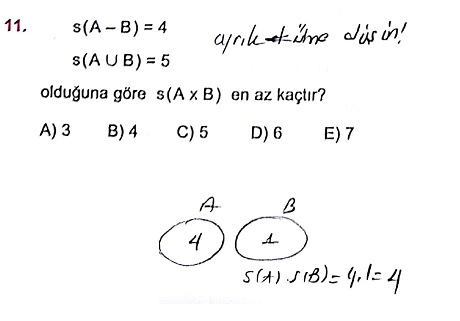 11. s(A – B) = 4
ayrık küme düşün!
s(A ∪ B) = 5
olduğuna göre s(A x B) en az kaçtır?
A) 3 B) 4 C) 5 D) 6 E) 7
A B
4 1
s(A).s(B)=4.1=4